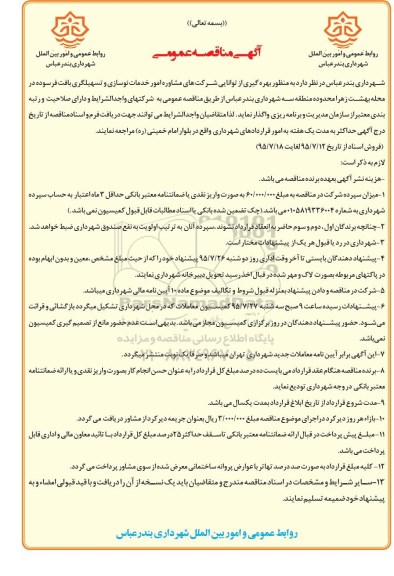 ((بسمه تعالی))
روابط عمومی و امور بین الملل
شهرداری بندرعباس
آگهی مناقصه عمومی
روابط عمومی و امور بین الملل
شهرداری بندرعباس
شهرداری بندرعباس در نظر دارد به منظور بهره گیری از توانایی شرکت های مشاوره امور خدمات نوسازی و تسهیلگری بافت فرسوده در
محله بهشت زهرا محدوده منطقه سه شهرداری بندرعباس از طریق مناقصه عمومی به شرکتهای واجدالشرایط و دارای صلاحیت و رتبه
بندی معتبر از سازمان مدیریت و برنامه ریزی واگذار نماید . لذا متقاضیان واجدالشرایط می توانند جهت دریافت فرم و اسناد مناقصه از تاریخ
درج آگهی حداکثر به مدت یک هفته به امور قراردادهای شهرداری واقع در بلوار امام خمینی (ره) مراجعه نمایند.
(فروش اسناد از تاریخ ۹۵/۷/۱۲ لغایت ۹۵/۷/۱۸)
لازم به ذکر است:
-هزینه نشر آگهی بعهده برنده مناقصه می باشد.
۱-میزان سپرده شرکت در مناقصه به مبلغ ۶۰/۰۰۰/۰۰۰ به صورت واریز نقدی یا ضمانتنامه معتبر بانکی حداقل ۳ ماه اعتبار به حساب سپرده
شهرداری به شماره ۰۱۰۵۸۱۹۳۳۶۰۰۴ می باشد.(چک تضمین شده بانکی یا اسناد مطالبات قابل قبول کمیسیون نمی باشد.)
۲-چنانچه برندگان اول ، دوم و سوم حاضر به انعقاد قرارداد نشوند، سپرده آنان به ترتیب اولویت به نفع صندوق شهرداری ضبط خواهد شد.
۳-شهرداری در رد یا قبول هر یک از پیشنهادات مختار است.
۴-پیشنهاد دهندگان بایستی تا آخر وقت اداری روز دو شنبه ۹۵/۷/۲۶ پیشنهاد خود را که از حیث مبلغ مشخص ،معین و بدون ابهام بوده
در پاکتهای مربوطه بصورت لاک و مهر شده در قبال اخذ رسید تحویل دبیرخانه شهرداری نمایند.
۵-شرکت در مناقصه و دادن پیشنهاد بمنزله قبول شروط و تکالیف موضوع ماده ۱۰ آیین نامه مالی شهرداری میباشد.
۶-پیشنهادات رسیده ساعت ۹ صبح سه شنبه ۹۵/۷/۲۷ کمیسیون معاملات که در محل شهرداری تشکیل میگردد بازگشائی و قرائت
می شود. حضور پیشنهاد دهندگان در روز برگزاری کمیسیون مجاز می باشد. بدیهی است عدم حضور مانع از تصمیم گیری کمیسیون
نمی باشد.
۷-این آگهی برابر آیین نامه معاملات جدید شهرداری تهران میباشد و صرفا یک نوبت منتشر میگردد.
۸-برنده مناقصه هنگام عقد قرارداد می بایست ده درصد مبلغ کل قرارداد را به عنوان حسن انجام کار بصورت واریز نقدی و یا ارائه ضمانتنامه
معتبر بانکی در وجه شهرداری تودیع نماید.
۹-مدت شروع قرارداد از تاریخ ابلاغ قرارداد بمدت یکسال می باشد.
۱۰-بازاء هر روز دیرکرد در اجرای موضوع مناقصه مبلغ ۳/۰۰۰/۰۰۰ ریال بعنوان جریمه دیرکرد از مشاور دریافت می گردد.
۱۱-مبلغ پیش پرداخت در قبال ارائه ضمانتنامه معتبر بانکی تا سقف حداکثر ۲۵ درصد مبلغ کل قرارداد با تائید معاون مالی و اداری قابل
پرداخت می باشد.
۱۲- کلیه مبلغ قرارداد به صورت صد درصد تهاتر با عوارض پروانه ساختمانی معرض شده از سوی مشاور پرداخت می گردد.
۱۳-سایر شرایط و مشخصات در اسناد مناقصه مندرج و متقاضیان باید یک نسخه از آن را دریافت و با قید قبولی امضاء و به
پیشنهاد خود ضمیمه تسلیم نمایند.
روابط عمومی و امور بین الملل شهرداری بندرعباس